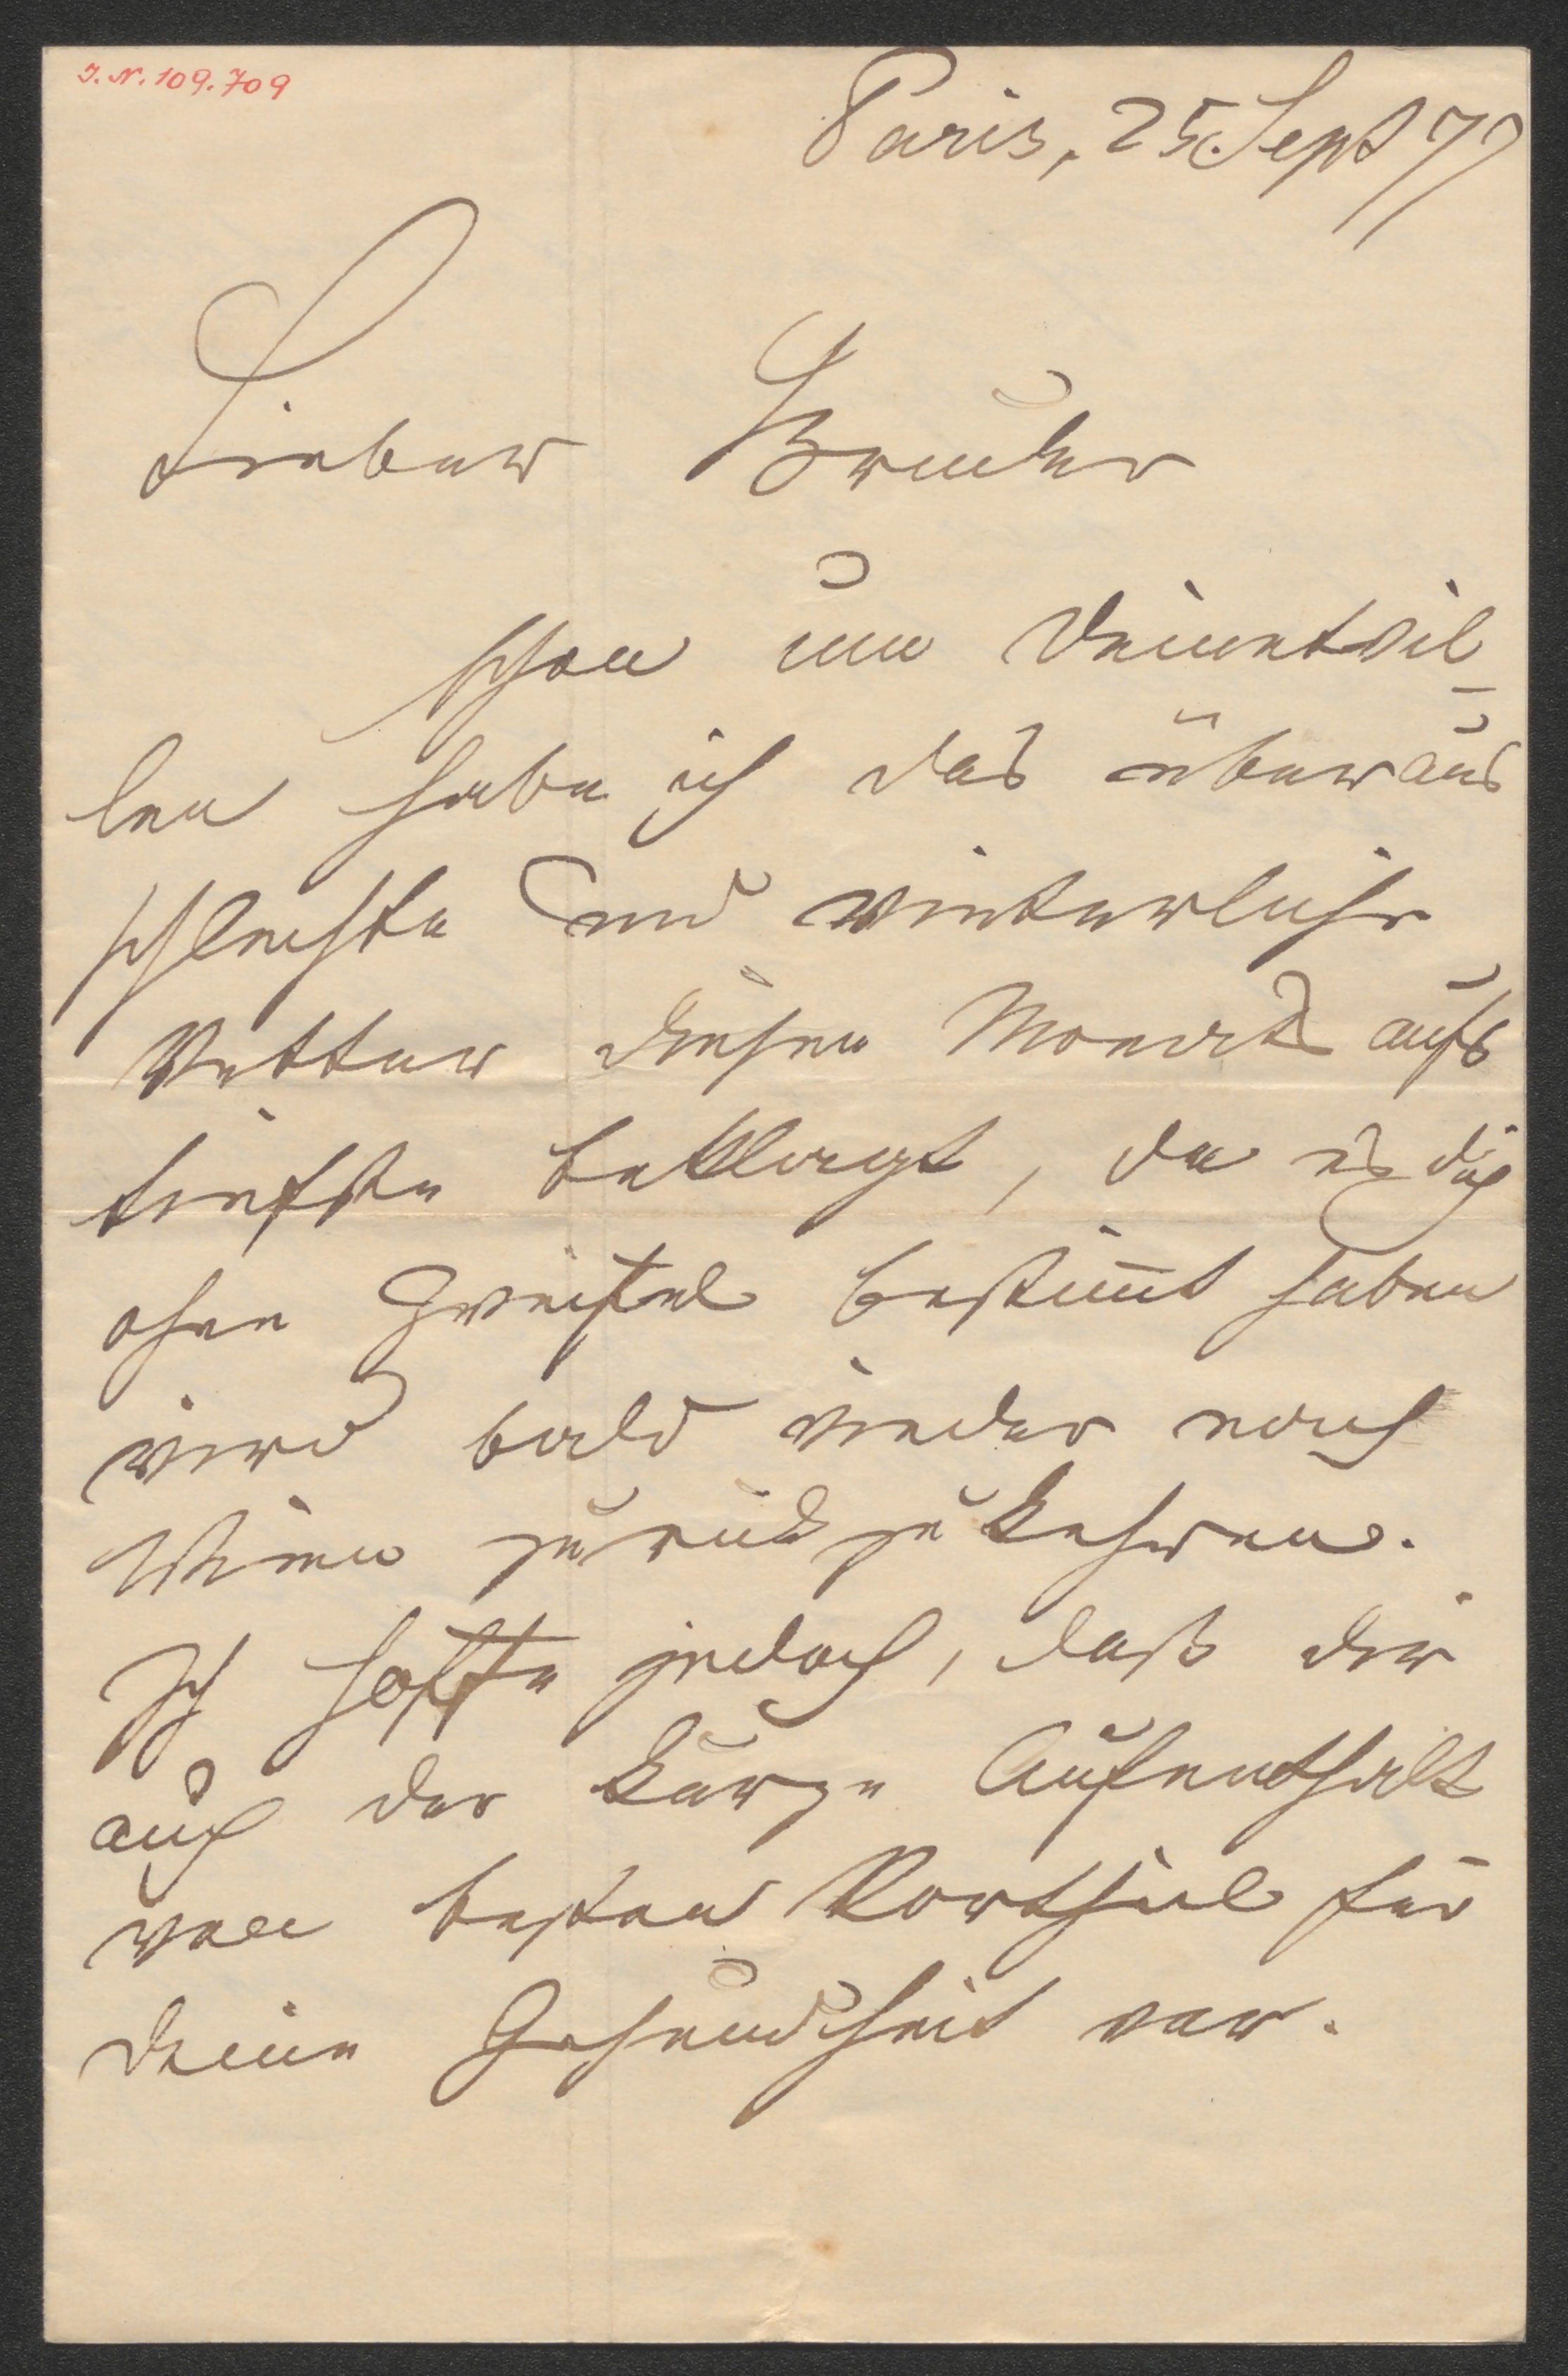 J. N. 109.709
Paris, 25. Sept 77
Lieber Bruder
schon um Deinetwil-
len habe ich das überaus
schlechte und winterliche
Wetter dieses Monats aufs
tiefste beklagt, da es dich
ohne Zweifel bestim̄t haben
wird bald wieder nach
Wien zurückzukehren.
Ich hoffe jedoch, daß dir
auch der kurze Aufenthalt
vom besten Vortheil für
Deine Gesundheit war.